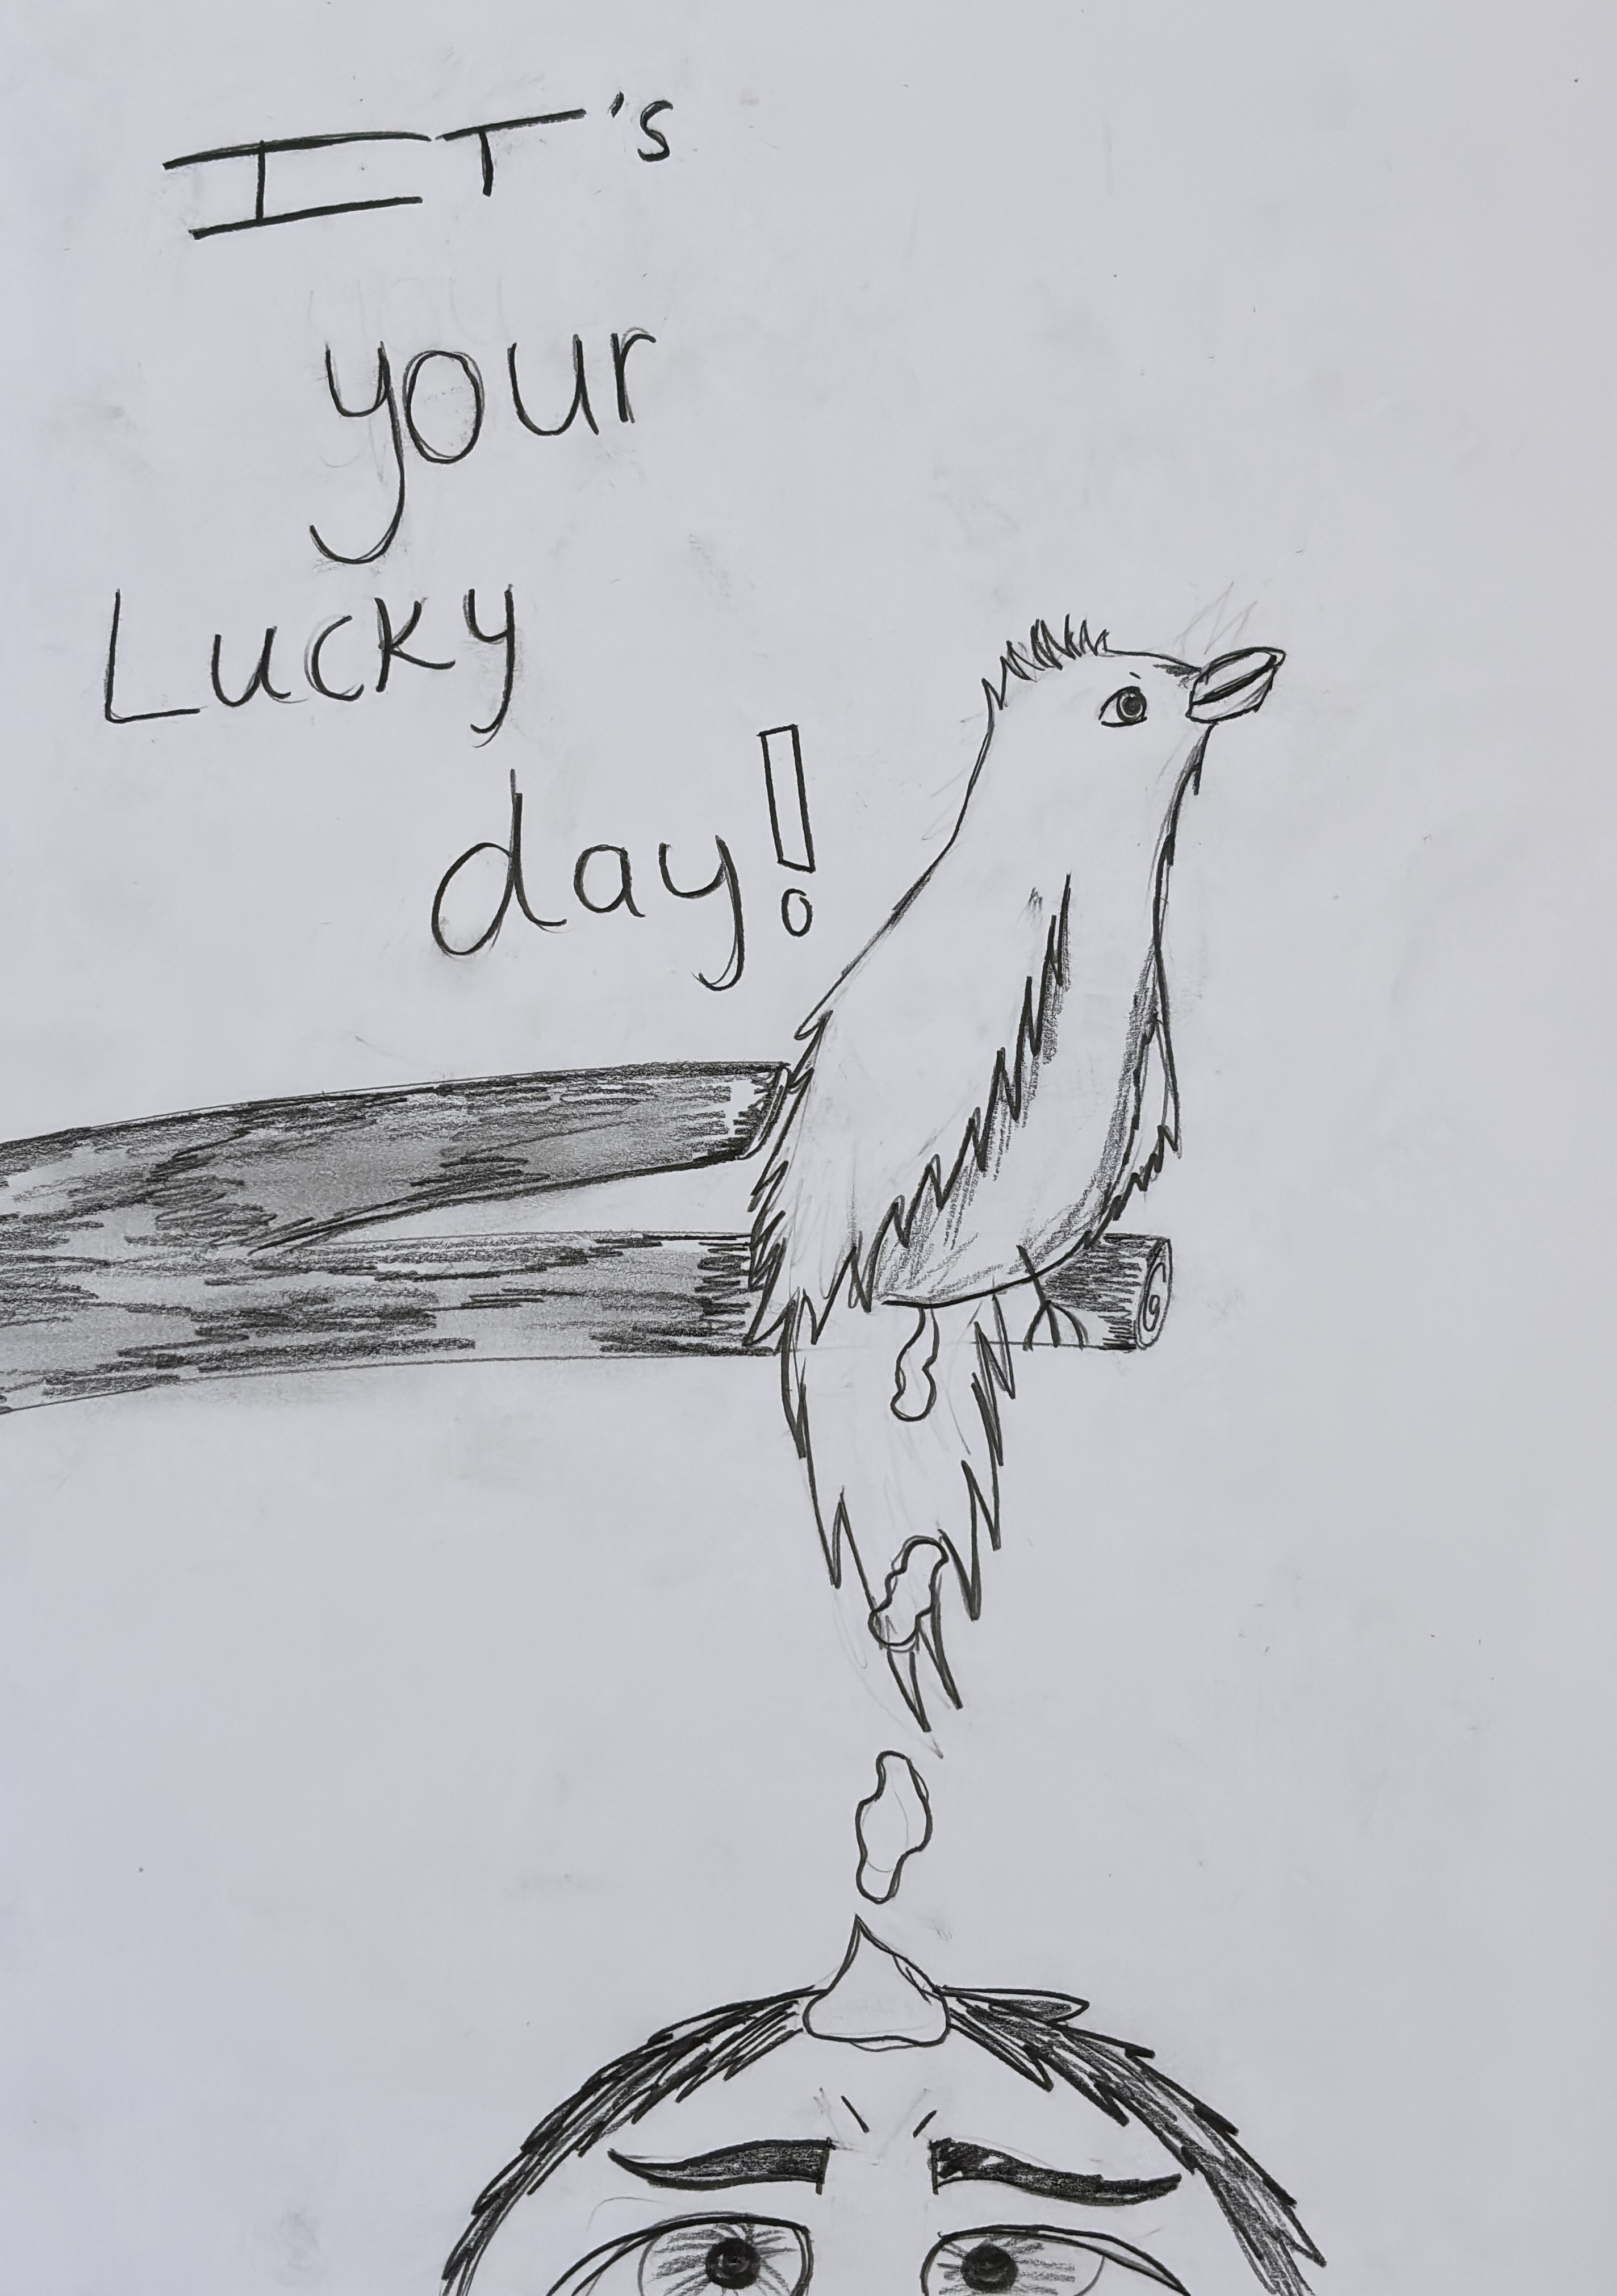 IT's
your
Lucky
day!